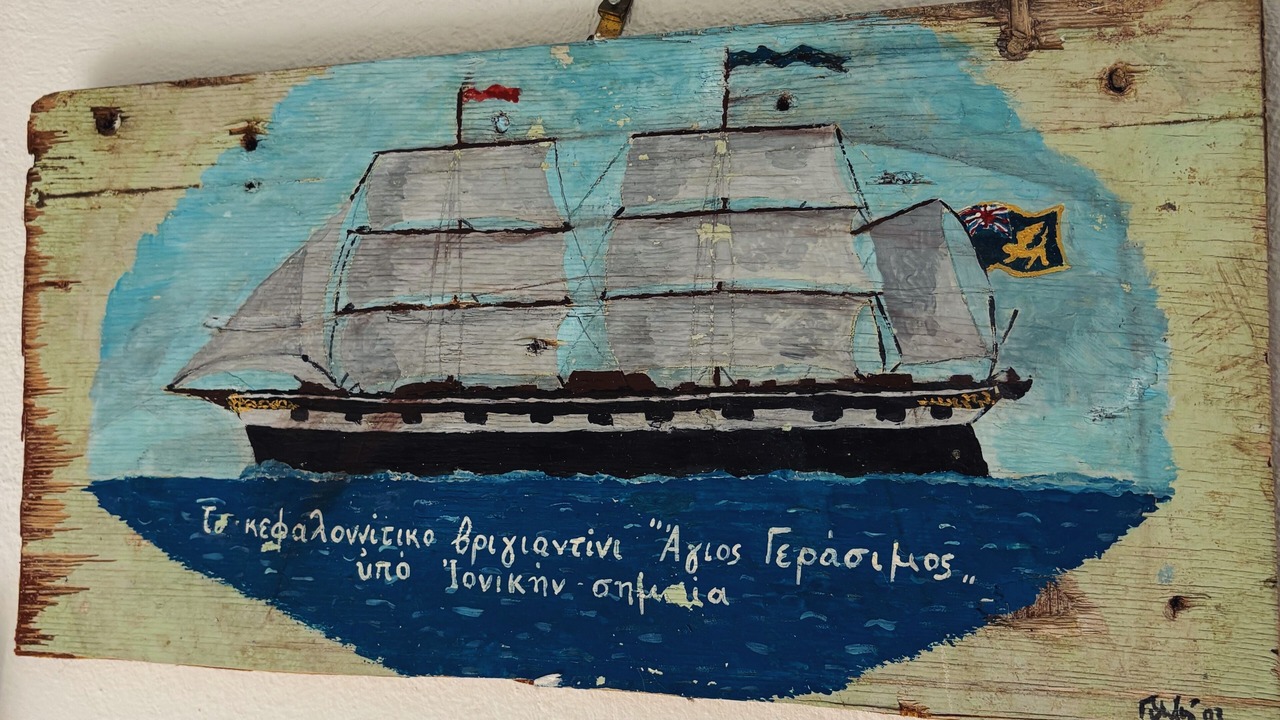 Τὸ κεφαλοννίτικο βριγιαντίνι "Ἅγιος Γεράσιμος„
ὑπὸ Ἰονικὴν σημαία